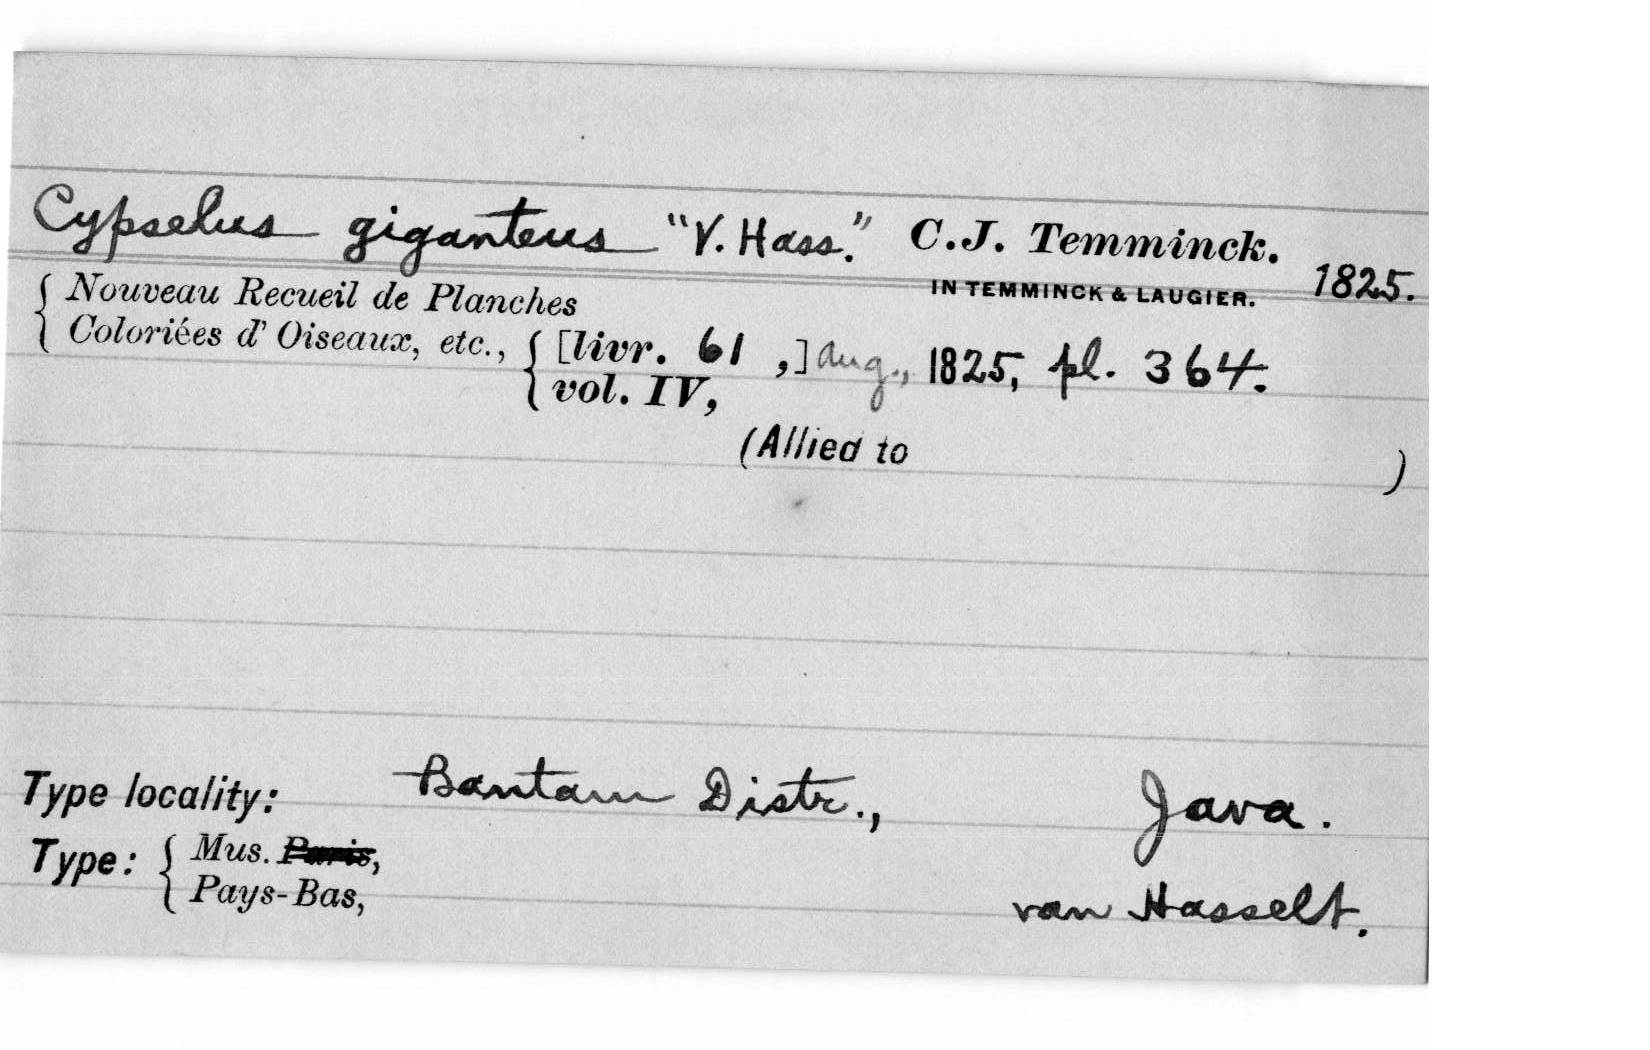 Cypselus giganteus "V. Hass." C.J. Temminck.
IN TEMMINCK & LAUGIER. 1825.
{ Nouveau Recueil de Planches
Coloriées d' Oiseaux, etc., { [livr. 61 ,] Aug., 1825, pl. 364.
vol. IV,
(Allied to )
Type locality: Bantam Distr., Java.
Type: { Mus. Paris,
Pays-Bas, van Hasselt.